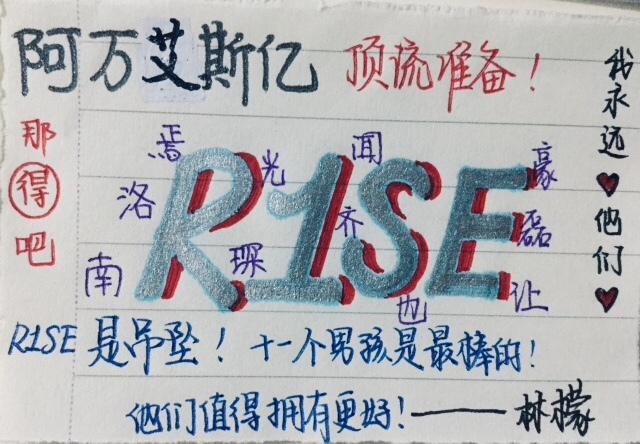 阿万艾斯亿 顶流准备！
我永远♥他们♥
那得吧
焉 光 闻 豪
洛 齐 磊
南 琛 也 让
R1SE
R1SE 是吊坠！十一个男孩是最棒的！
他们值得拥有更好！——林檬